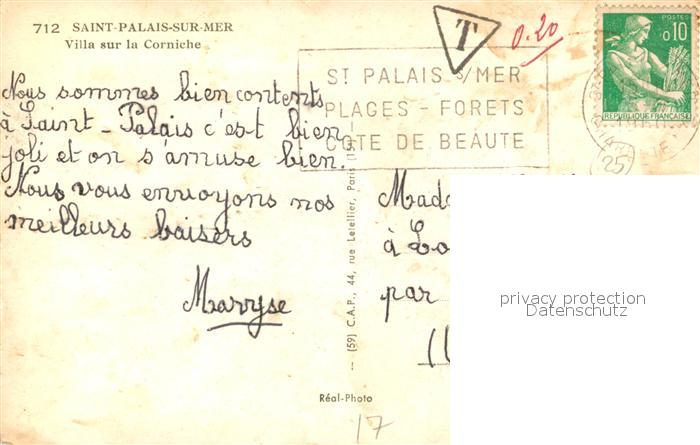 712 SAINT-PALAIS-SUR-MER
Villa sur la Corniche
T
0.20
POSTES
0,10
REPUBLIQUE FRANCAISE
ST PALAIS S/MER
PLAGES - FORETS
COTE DE BEAUTE
25
Nous sommes bien contents
à Saint-Palais c'est bien
joli et on s'amuse bien.
Nous vous envoyons nos
meilleurs baisers
Maryse
(59) C.A.P., 44, rue Letellier, Paris
Réal-Photo
à
par
privacy protection
Datenschutz
17